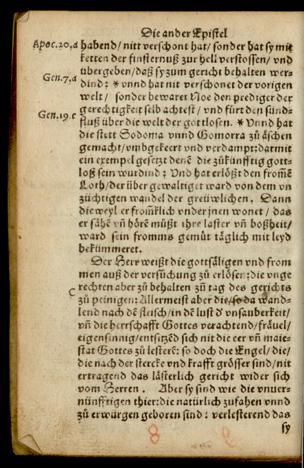 Die ander Epistel
Apoc.20,a habend/ nitt verschont hat/ sonder hat sy mit
ketten der finsternuß zur hell verstossen/ vnd
übergeben/ daß sy zum gericht behalten wer-
Gen.7,a dind: * vnnd hat nit verschonet der vorigen
welt/ sonder bewaret Noe den prediger der
gerechtigkeit selb achtest/ vnd fürt den sünd-
Gen.19.c fluß über die welt der gottlosen. * Vnnd hat
die stett Sodoma vnnd Gomorra zů äschen
gemacht/ vmbgekeert vnd verdampt: darmit
ein exempel gesetzt denē die zůkünfftig gott-
loß sein wurdind: Vnd hat erlößt den frommē
Loth/ der über gewaltiget ward von dem vn
züchtigen wandel der greüwlichen. Dann
die weyl er fromklich vnder jnen wonet/ das
er sähē vñ hörē můßt ihre laster vñ boßheit/
ward sein fromms gemüt täglich mit leyd
bekümmeret.
Der Herr weißt die gottsäligen vnd from
men auß der versůchung zů erlöser: die vnge
rechten aber zů behalten zů tag des gerichts
C zů peinigen: Allermeist aber die/ so da wand-
lend nach dē fleisch/ in dē lust d' vnsauberkeit/
vñ die herrschafft Gottes verachtend/ fräuel/
eigensinnig/ entsitzēd sich nit die eer vñ maie-
stat Gottes zů lesterē: so doch die Engel/ die/
die nach der stercke vnd krafft grösser sind/ nit
ertragend das lästerlich gericht wider sich
vom Herren. Aber sy sind wie die vnuer-
nünfftigen thier: die natürlich zůfahen vnnd
zů erwürgen geboren sind: verlesterend das
sy
8